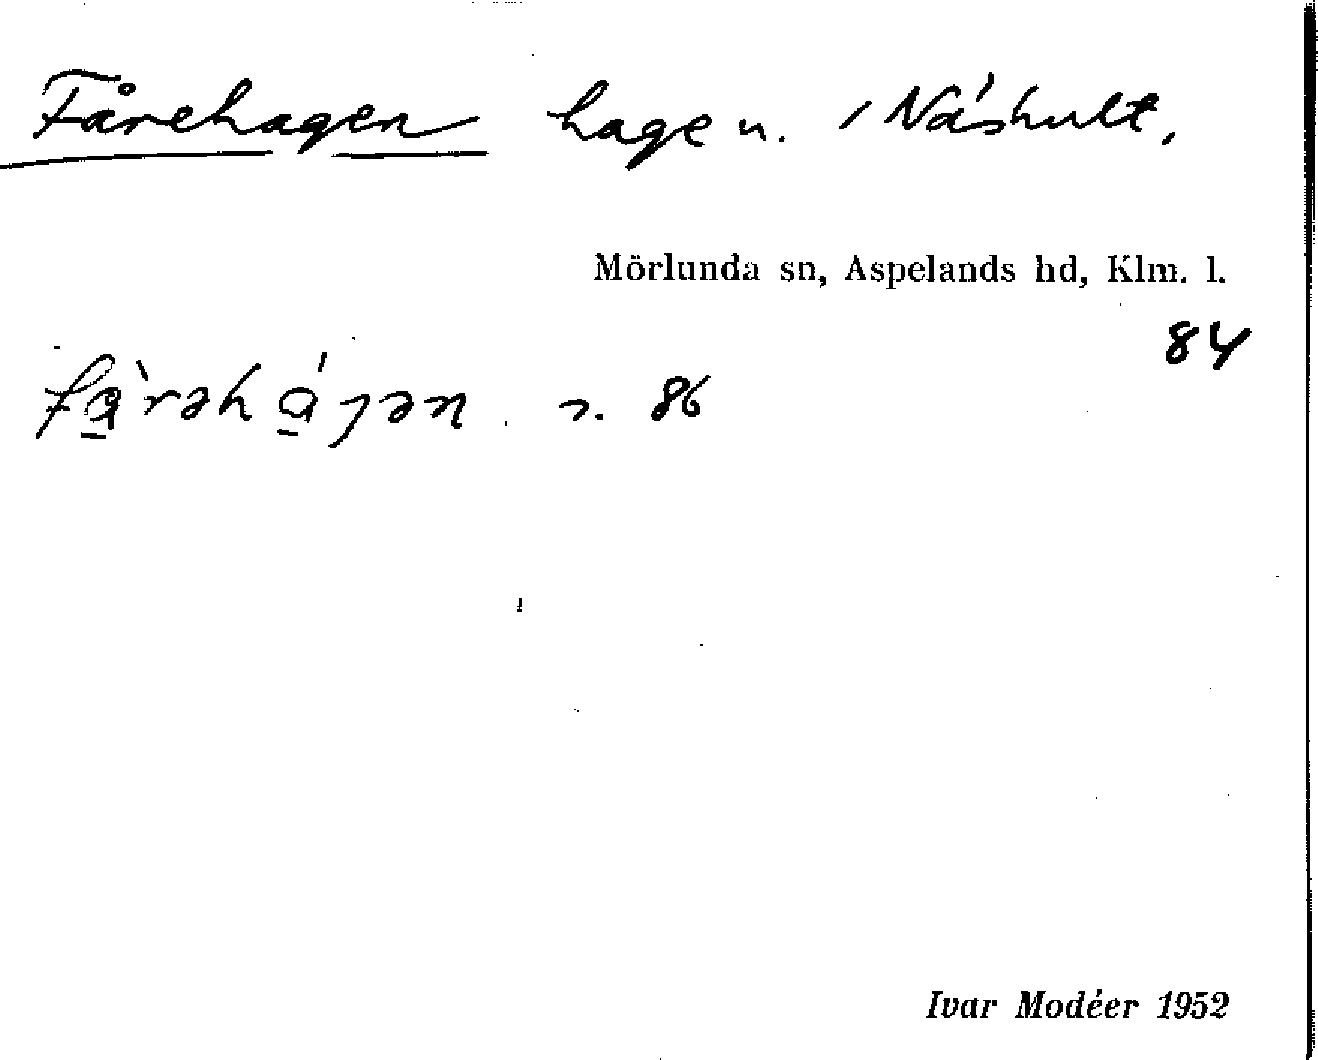 Fårehagen hage n. i Näshult.
Mörlunda sn, Aspelands hd, Klm. l.
84
86
Ivar Modéer 1952